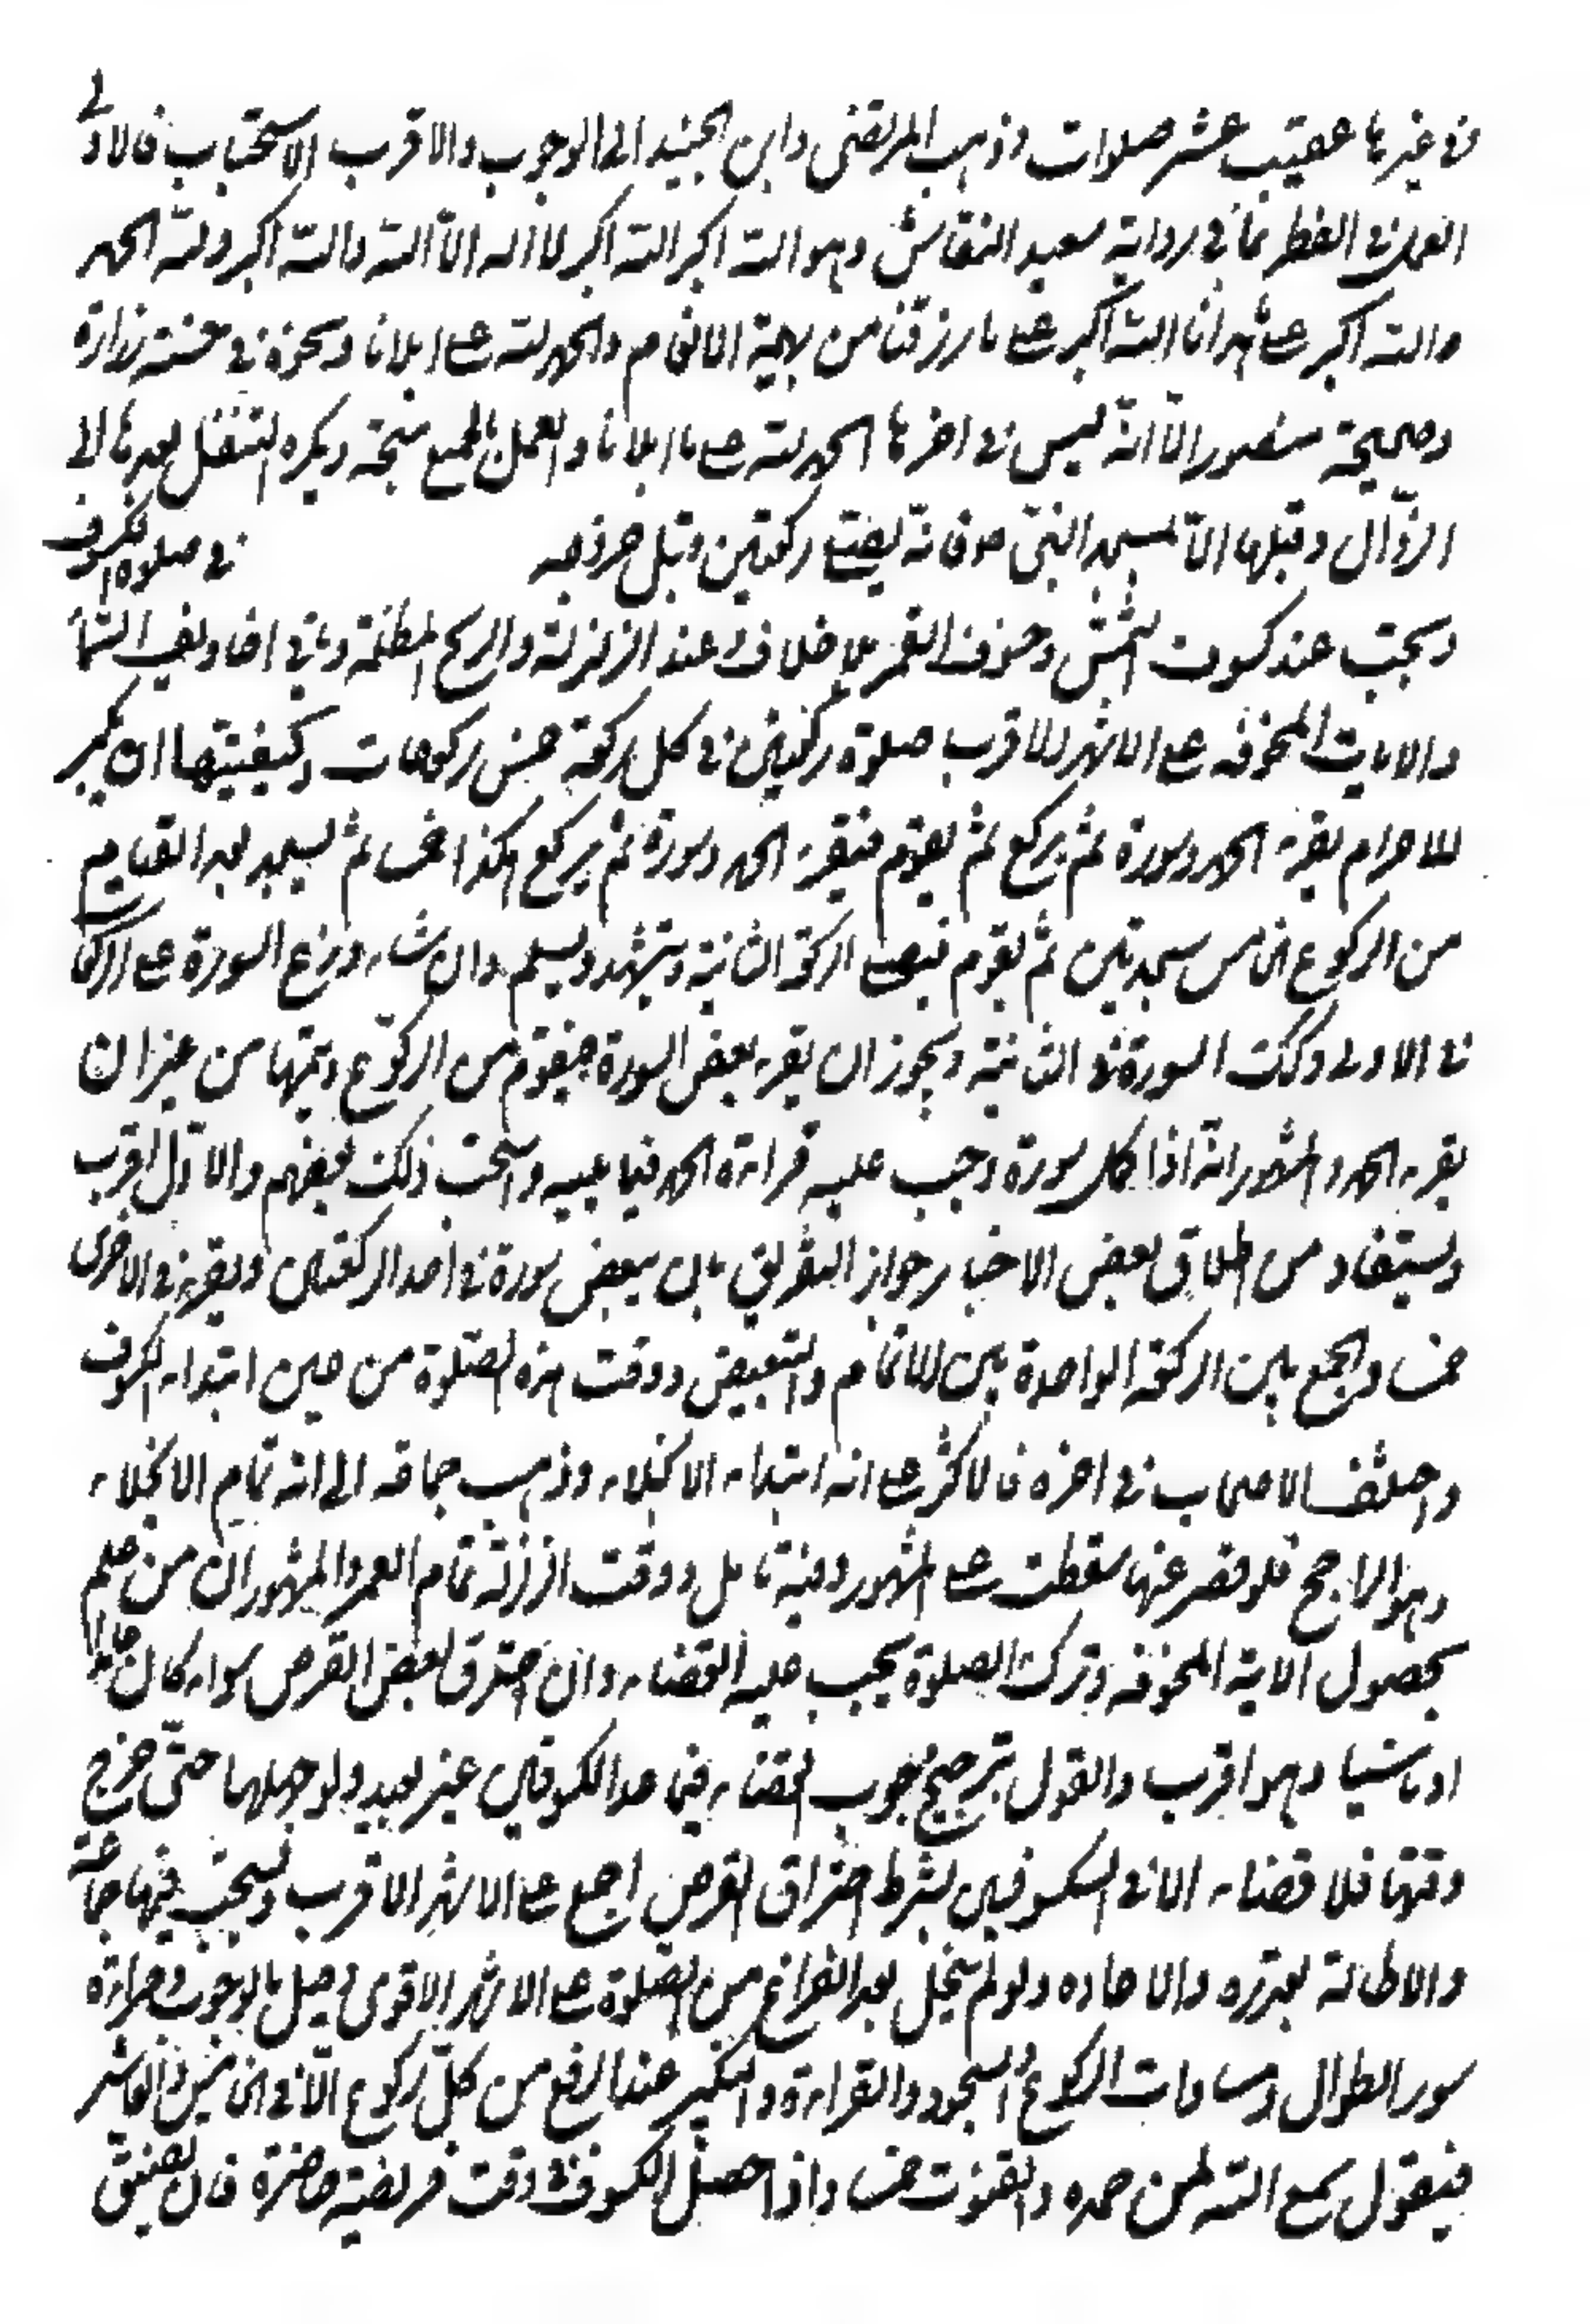 في غيرها عقيب عشر صلوات وذهب المرتضى وابن الجنيد الى الوجوب والاقرب الاستحباب فالاولى
العمل في الفطر بما في رواية سعيد النقاش وهو الله اكبر الله اكبر لا اله الا الله والله اكبر ولله الحمد
والله اكبر على ما هدانا الله اكبر على ما رزقنا من بهيمة الانعام والحمد لله على ما ابلانا ونحوه في حسنة زرارة
وصحيحة منصور الا انه ليس في اخرها الحمد لله على ما ابلانا والعمل بالجميع متجه ويكره التنفل بعدها الى
الزوال وقبلها الا بمسجد النبي ص فانه يصلى ركعتين وقبل خروجه في صلوة الكسوف
ويجب عند كسوف الشمس وخسوف القمر بلا خلاف وعند الزلزلة والريح المظلمة وباقي اخاويف السماء
والايات المخوفه على الاشهر الاقرب صلوة ركعتين في كل ركعة خمس ركوعات وكيفيتها ان يكبر
للاحرام يقرء الحمد وسورة ثم يركع ثم يقوم فيقرء الحمد وسورة ثم يركع هكذا خمسا ثم يسجد بعد القيام
من الركوع الخامس سجدتين ثم يقوم فيصلى الركعة الثانية ويتشهد ويسلم وان شاء وزع السورة على الركعات
في الاولى وكذا السورة في الثانية ويجوز ان يقرء بعض السورة فيقوم من الركوع ويتمها من غير ان
يقرء الحمد والمشهور انه اذا اكمل سورة وجب عليه قراءة الحمد فيما يليه واستحب ذلك بعضهم والاول اقرب
ويستفاد من اطلاق بعض الاخبار جواز التفريق بان يبعض سورة في احد الركعتين ويقرء في الاخرى
خمسا والجمع بين الركعة الواحدة بين الاتمام والتبعيض ووقت هذه الصلوة من حين ابتداء الكسوف
واختلف الاصحاب في اخره فالاكثر على انه ابتداء الانجلاء وذهب جماعة الى انه تمام الانجلاء
وهو الراجح فلو قصر عنها سقطت على المشهور وفيه تامل ووقت الزلزلة تمام العمر والمشهور ان من علم
بحصول الاية المخوفه وترك الصلوة يجب عليه القضاء وان احترق بعض القرص سواء كان عامدا
او ناسيا وهو اقرب والقول بترجيح وجوب القضاء فيما عدا الكسوفين غير بعيد ولو جهلها حتى خرج
وقتها فلا قضاء الا في الكسوفين بشرط احتراق القرص اجمع على الاشهر الاقرب ويستحب فيها جماعة
والاطالة بقدره والاعاده ولو لم ينجل بعد الفراغ من الصلوة على الاشهر الاقوى وقيل بالوجوب وقراءة
سور الطوال ومساوات الركوع والسجود والقراءة والتكبير عند الرفع من كل ركوع الا في الخامس والعاشر
فيقول سمع الله لمن حمده والقنوت خمسا واذا حصل الكسوف في وقت فريضة حاضرة فان تضيق